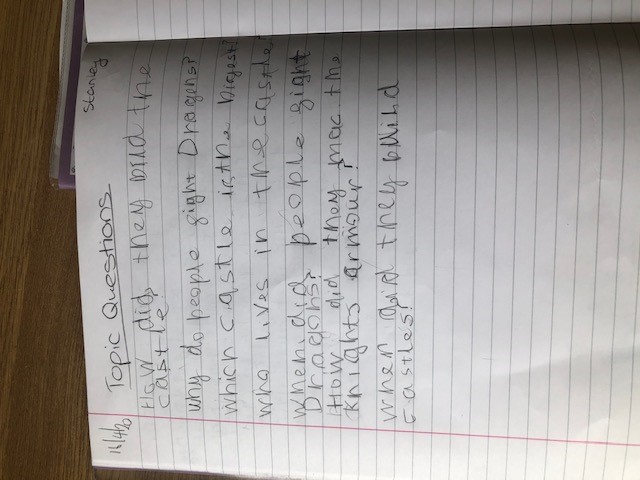 16/4/20 Topic Questions Stanley
How did they bild the
castle?
why do people fight Dragens?
which castle is the bigest?
who lives in the castle?
when did people fight
Dragons?
How did they mac the
knights armour?
when did they blind
castles?